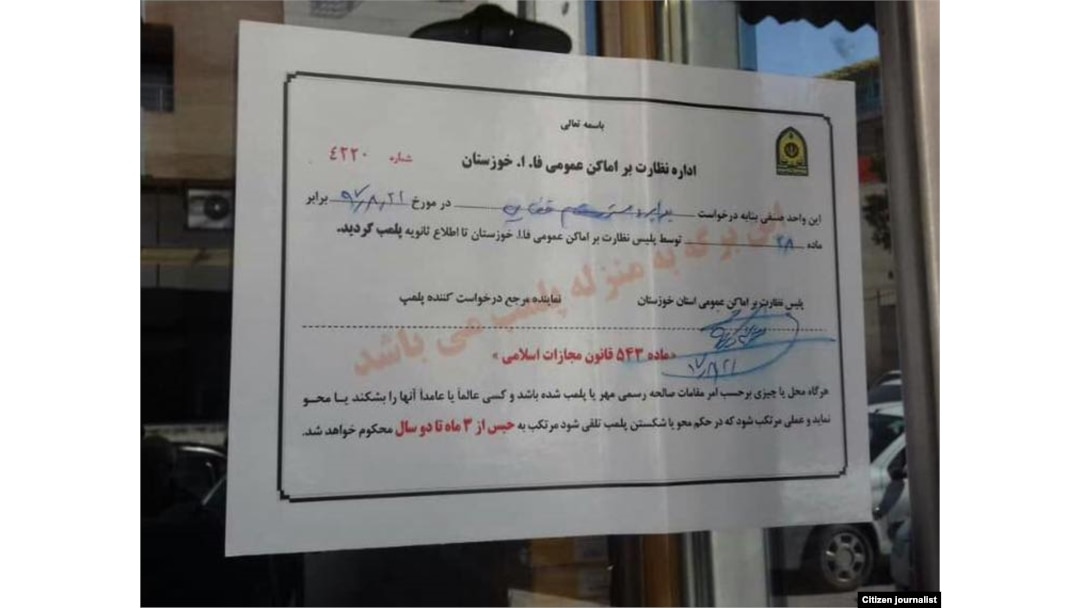 باسمه تعالی
اداره نظارت بر اماکن عمومی فا. ا. خوزستان
شماره ٤٢٢٠
این واحد صنفی بنابه درخواست در مورخ ۹۷/۸/۲۱ برابر
ماده ۲۸ توسط پلیس نظارت بر اماکن عمومی فا.ا. خوزستان تا اطلاع ثانویه پلمب گردید.
این برگه به منزله پلمب می باشد
پلیس نظارت بر اماکن عمومی استان خوزستان
نماینده مرجع درخواست کننده پلمپ
۹۷/۸/۲۱
«ماده ۵۴۳ قانون مجازات اسلامی»
هرگاه محل یا چیزی برحسب امر مقامات صالحه رسمی مهر یا پلمب شده باشد و کسی عالماً یا عامداً آنها را بشکند یا محو
نماید و عملی مرتکب شود که در حکم محو یا شکستن پلمب تلقی شود مرتکب به حبس از ۳ ماه تا دو سال محکوم خواهد شد.
Citizen journalist